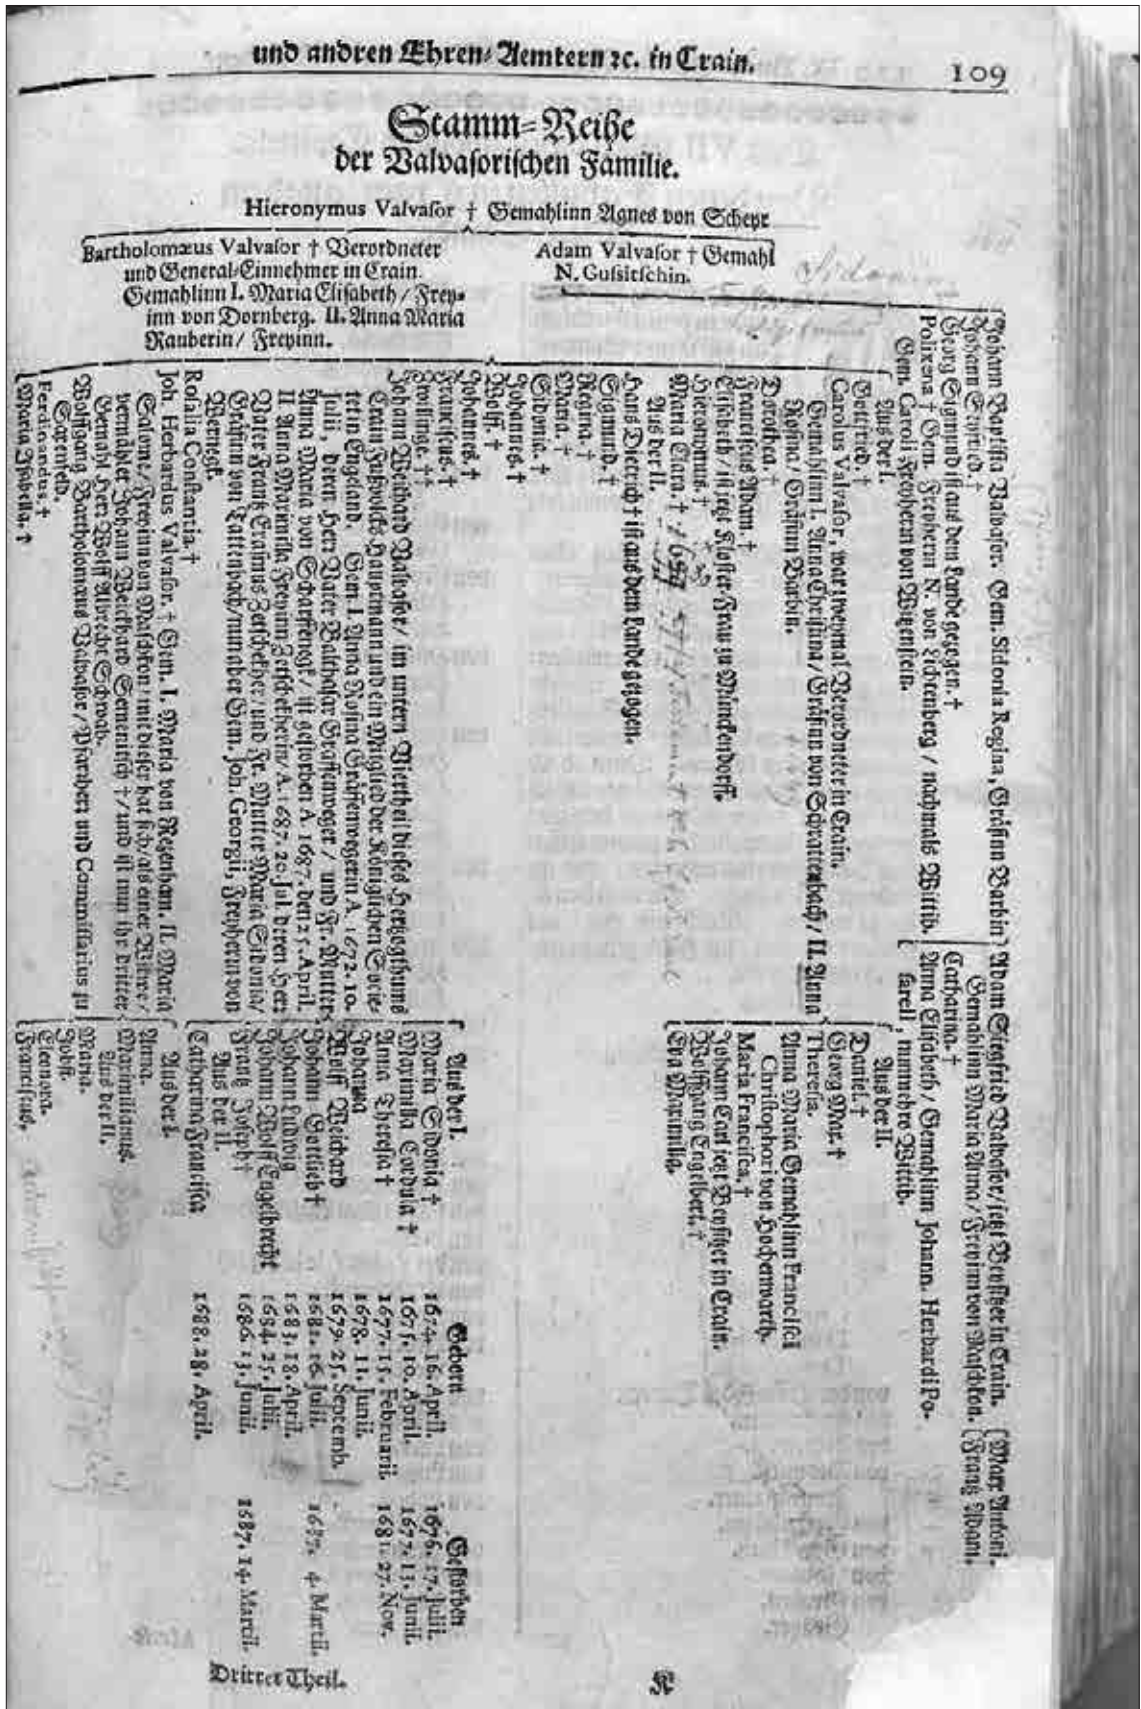 und andren Ehren-Aemtern ꝛc. in Crain.
109
Stamm-Reihe
der Valvasorischen Familie.
Hieronymus Valvasor † Gemahlinn Agnes von Scheyr
Bartholomæus Valvasor † Verordneter
und General-Einnehmer in Crain.
Gemahlinn I. Maria Elisabeth / Frey-
inn von Dornberg. II. Anna Maria
Rauberin / Freyinn.
Adam Valvasor † Gemahl
N. Gussitschin.
Johann Baptista Valvasor. Gem. Sidonia Regina, Gräfinn Barbin
Johann Seyfried. †
Georg Sigmund ist aus dem Lande gezogen. †
Polixena † Gem. Freyherrn N. von Lichtenberg / nachmals Wittib.
Gem. Caroli Freyherrn von Wizenstein.
Aus der I.
Gottfried. †
Carolus Valvasor, war zweymal Verordneter in Crain.
Gemahlinn I. Anna Christina / Gräfinn von Schrattenbach / II. Anna
Rosina / Gräfinn Barbin.
Dorothea. †
Franciscus Adam. †
Elisabeth / ist jetzt Kloster-Frau zu Münckendorff.
Hieronymus. †
Maria Clara. †
Aus der II.
Hans Dietrich † ist aus dem Lande gezogen.
Sigmund. †
Regina. †
Maria. †
Sidonia. †
Johannes. †
Wolff. †
Johannes. †
Franciscus. †
Zwillinge. † †
Johann Weichard Valvasor / im untern Viertheil dieses Hertzogthums
Crain Fußvolcks Hauptmann und ein Mitglied der Königlichen Socie-
tet in Engeland. Gem. I. Anna Rosina Gräffenwegerin A. 1672. 10.
Julii, deren Herr Vater Balthasar Graffenweger / und Fr. Mutter
Anna Maria von Scharffenegk / ist gestorben A. 1687. den 25. April.
II Anna Maximilla Freyinn Zetschekherin / A. 1687. 20. Jul. deren Herr
Vater Frantz Erasmus Zetschekher / und Fr. Mutter Maria Sidonia /
Gräfinn von Tattenbach / nun aber Gem. Joh. Georgii, Freyherrn von
Wernegk.
Rosalia Constantia. †
Joh. Herbardus Valvasor. † Gem. I. Maria von Regenham. II. Maria
Salome / Freyinn von Maschkon / mit dieser hat sich / als einer Witwe /
vermählet Johann Weickhard Semenitsch † / und ist nun ihr dritter
Gemahl Herr Wolff Albrecht Schwab.
Wolffgang Bartholomæus Valvasor / Pfarrherr und Commissarius zu
Sarenfeld.
Ferdinandus. †
Maria Isabella. †
Adam Siegfried Valvasor / jetzt Beysitzer in Crain.
Gemahlinn Maria Anna / Freyinn von Maschkon.
Catharina. †
Anna Elisabeth / Gemahlinn Johann. Herbardi Po-
sarell, nunmehro Wittib.
Marx Antoni.
Frantz Adam.
Aus der II.
Daniel. †
Georg Max. †
Theresia.
Anna Maria Gemahlinn Francisci
Christophori von Hochenwarth.
Maria Francisca. †
Johann Carl jetzt Beysitzer in Crain.
Wolffgang Engelbert. †
Eva Maximilla.
Aus der I. Geborn Gestorben
Maria Sidonia † 1674. 16. April. 1676. 17. Julii.
Maximilla Cordula † 1675. 10. April. 1677. 13. Junii.
Anna Theresia † 1677. 15. Februarii. 1681. 27. Nov.
Johanna 1678. 11. Junii.
Wolff Weichard 1679. 25. Septemb.
Johann Gottlieb † 1681. 16. Julii. 1687. 4. Martii.
Johann Ludwig 1683. 18. April.
Johann Wolff Engelbrecht 1684. 25. Julii.
Frantz Joseph † 1686. 13. Junii. 1687. 14. Martii.
Aus der II.
Catharina Francisca 1688. 28. April.
Aus der I.
Anna.
Maximilianus.
Aus der II.
Maria.
Jobst.
Eleonora.
Franciscus.
Dritter Theil.
K